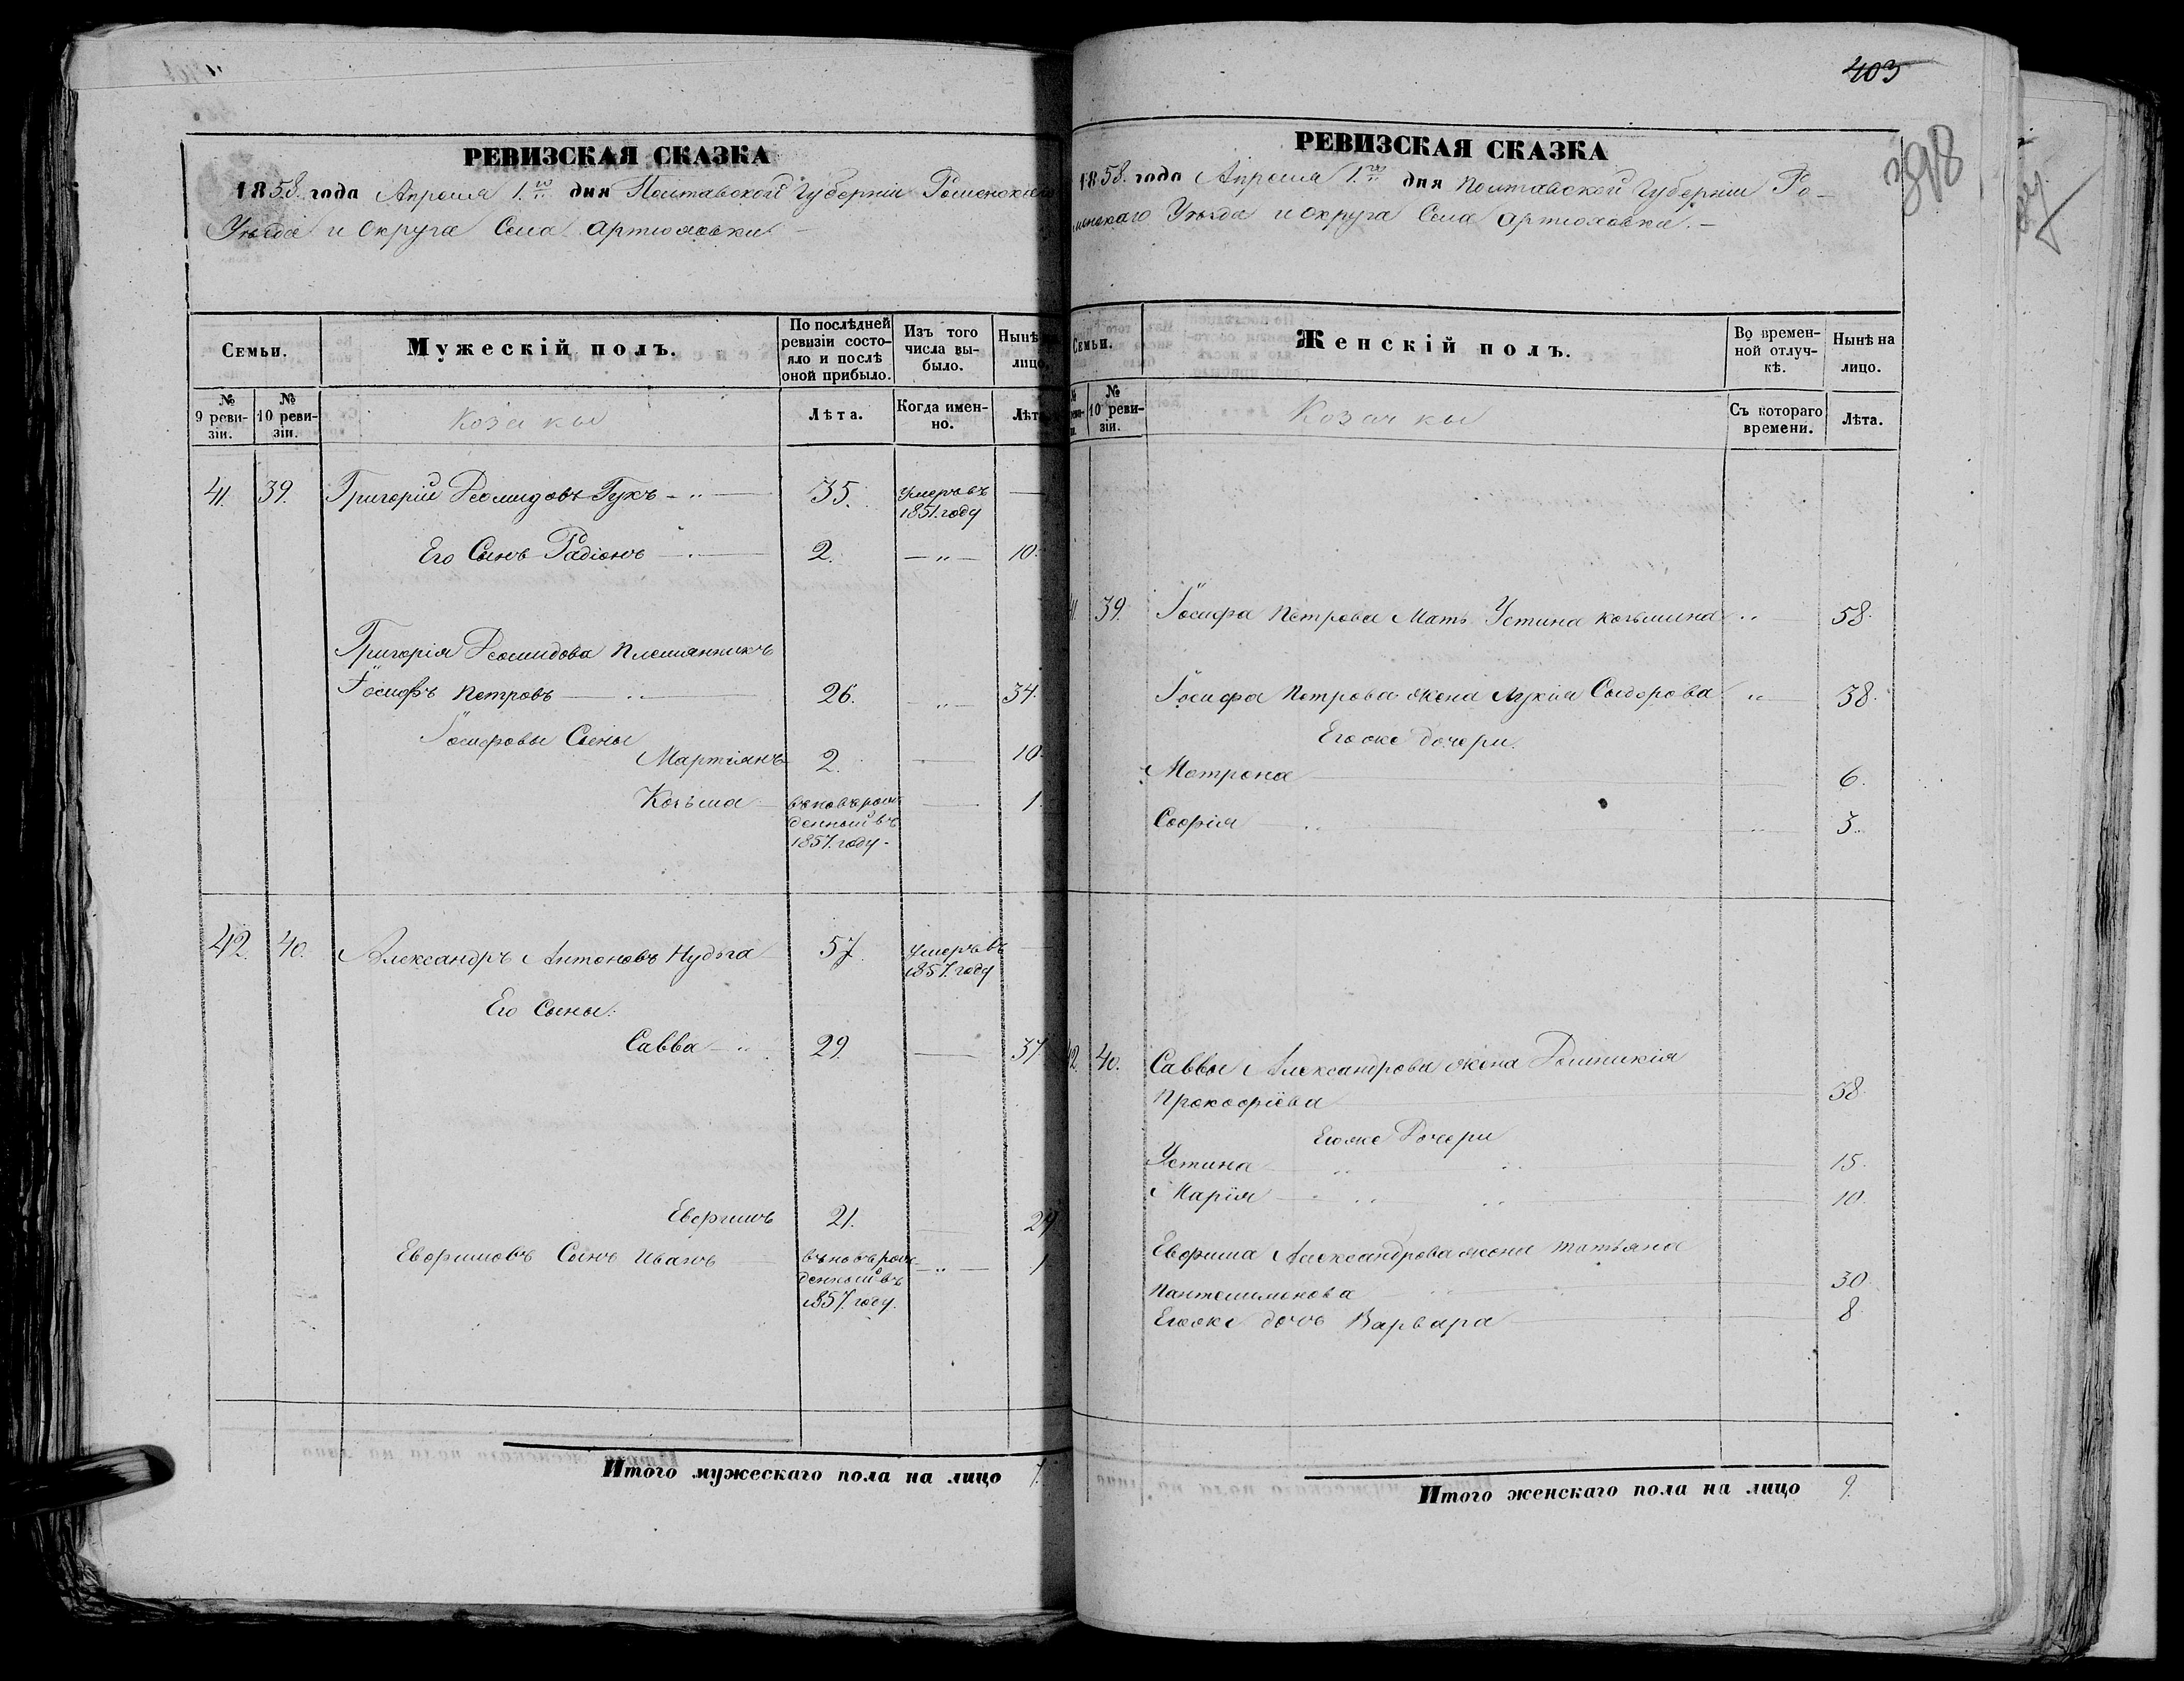 403
398
РЕВИЗСКАЯ СКАЗКА
1858. года Апреля 1.го дня Полтавской Губернии Роменскаго
Уезда и Округа Села Артюховки. –
Семьи.
Мужескій полъ.
По послѣдней ревизіи состояло и послѣ оной прибыло.
Изъ того числа выбыло.
Нынѣ
лицо.
№ 9 ревизіи.
№ 10 ревизіи.
Козаки
Лѣта.
Когда именно.
Лѣт
41. 39. Григорій Деомидовъ Гукъ 35. Умеръ въ 1851. году
Его Сынъ Радіонъ 2. 10.
Григорія Деомидова Племянникъ
Іосифъ Петровъ 26. 34.
Іосифовы Сыны
Мартіянъ 2. 10.
Козьма вновь рожденный въ 1857. году 1.
42. 40. Александръ Антоновъ Нудьга 57. Умеръ въ 1857. году
Его Сыны:
Савва 29. 37
Евфимъ 21. 29
Евфимовъ Сынъ Иванъ вновь рожденный въ 1857. году. 1
Итого мужескаго пола на лицо 7.
РЕВИЗСКАЯ СКАЗКА
1858. года Апреля 1.го дня Полтавской Губернии Ро-
менскаго Уезда и Округа Села Артюховки. –
Семьи.
Женскій полъ.
Во временной отлучкѣ.
Нынѣ на лицо.
№ 10 ревизіи.
Козачки
Съ котораго времени.
Лѣта.
41. 39. Іосифа Петрова Мать Устина Козьмина 58.
Іосифа Петрова жена Лукія Сыдорова 38.
Его же дочери.
Мотрона 6.
Софія 3.
42. 40. Саввы Александрова жена Домникія
Прокофіева 38.
Его же Дочери
Устина 15.
Марія 10.
Евфима Александрова жена Татьяна
Пантелимонова 30.
Его же дочь Варвара 8
Итого женскаго пола на лицо 9.